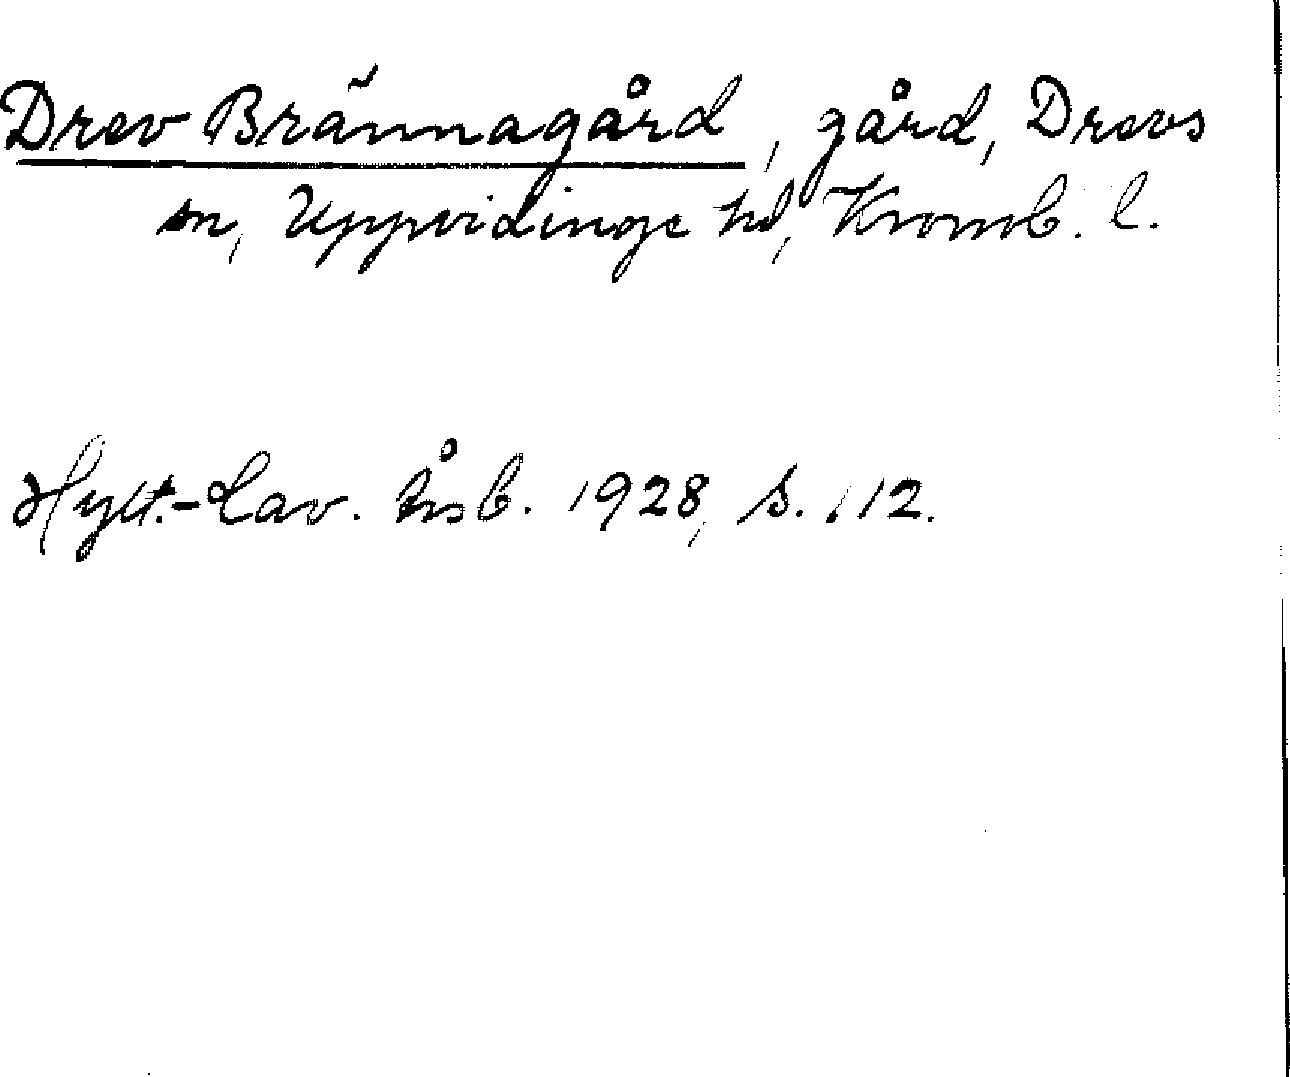 Drev Brännagård, gård, Drevs
sn, Uppvidinge hd, Kronob. l.
Hylt.-Cav. årsb. 1928, s. 112.